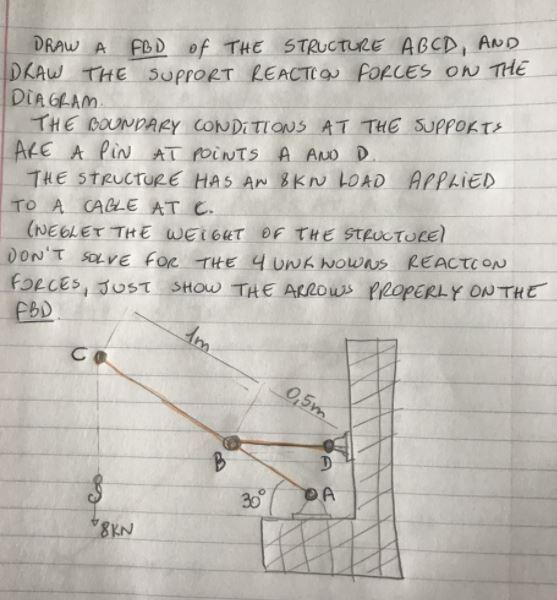 DRAW A FBD of THE STRUCTURE ABCD, AND
DRAW THE SUPPORT REACTION FORCES ON THE
DIAGRAM.
THE BOUNDARY CONDITIONS AT THE SUPPORTS
ARE A PIN AT POINTS A AND D.
THE STRUCTURE HAS AN 8KN LOAD APPLIED
TO A CABLE AT C.
(NEGLET THE WEIGHT OF THE STRUCTURE)
DON'T SOLVE FOR THE 4 UNKNOWNS REACTION
FORCES, JUST SHOW THE ARROWS PROPERLY ON THE
FBD.
1m
C
0,5m
B
D
30°
A
8KN